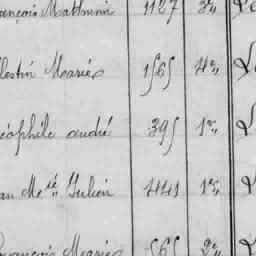 ançois Mathurin 1127 3e
lestin Marie 1565 4e
éophile andré 395 1e
an Mie Julien 441 1e
rançois Marie 565 2e